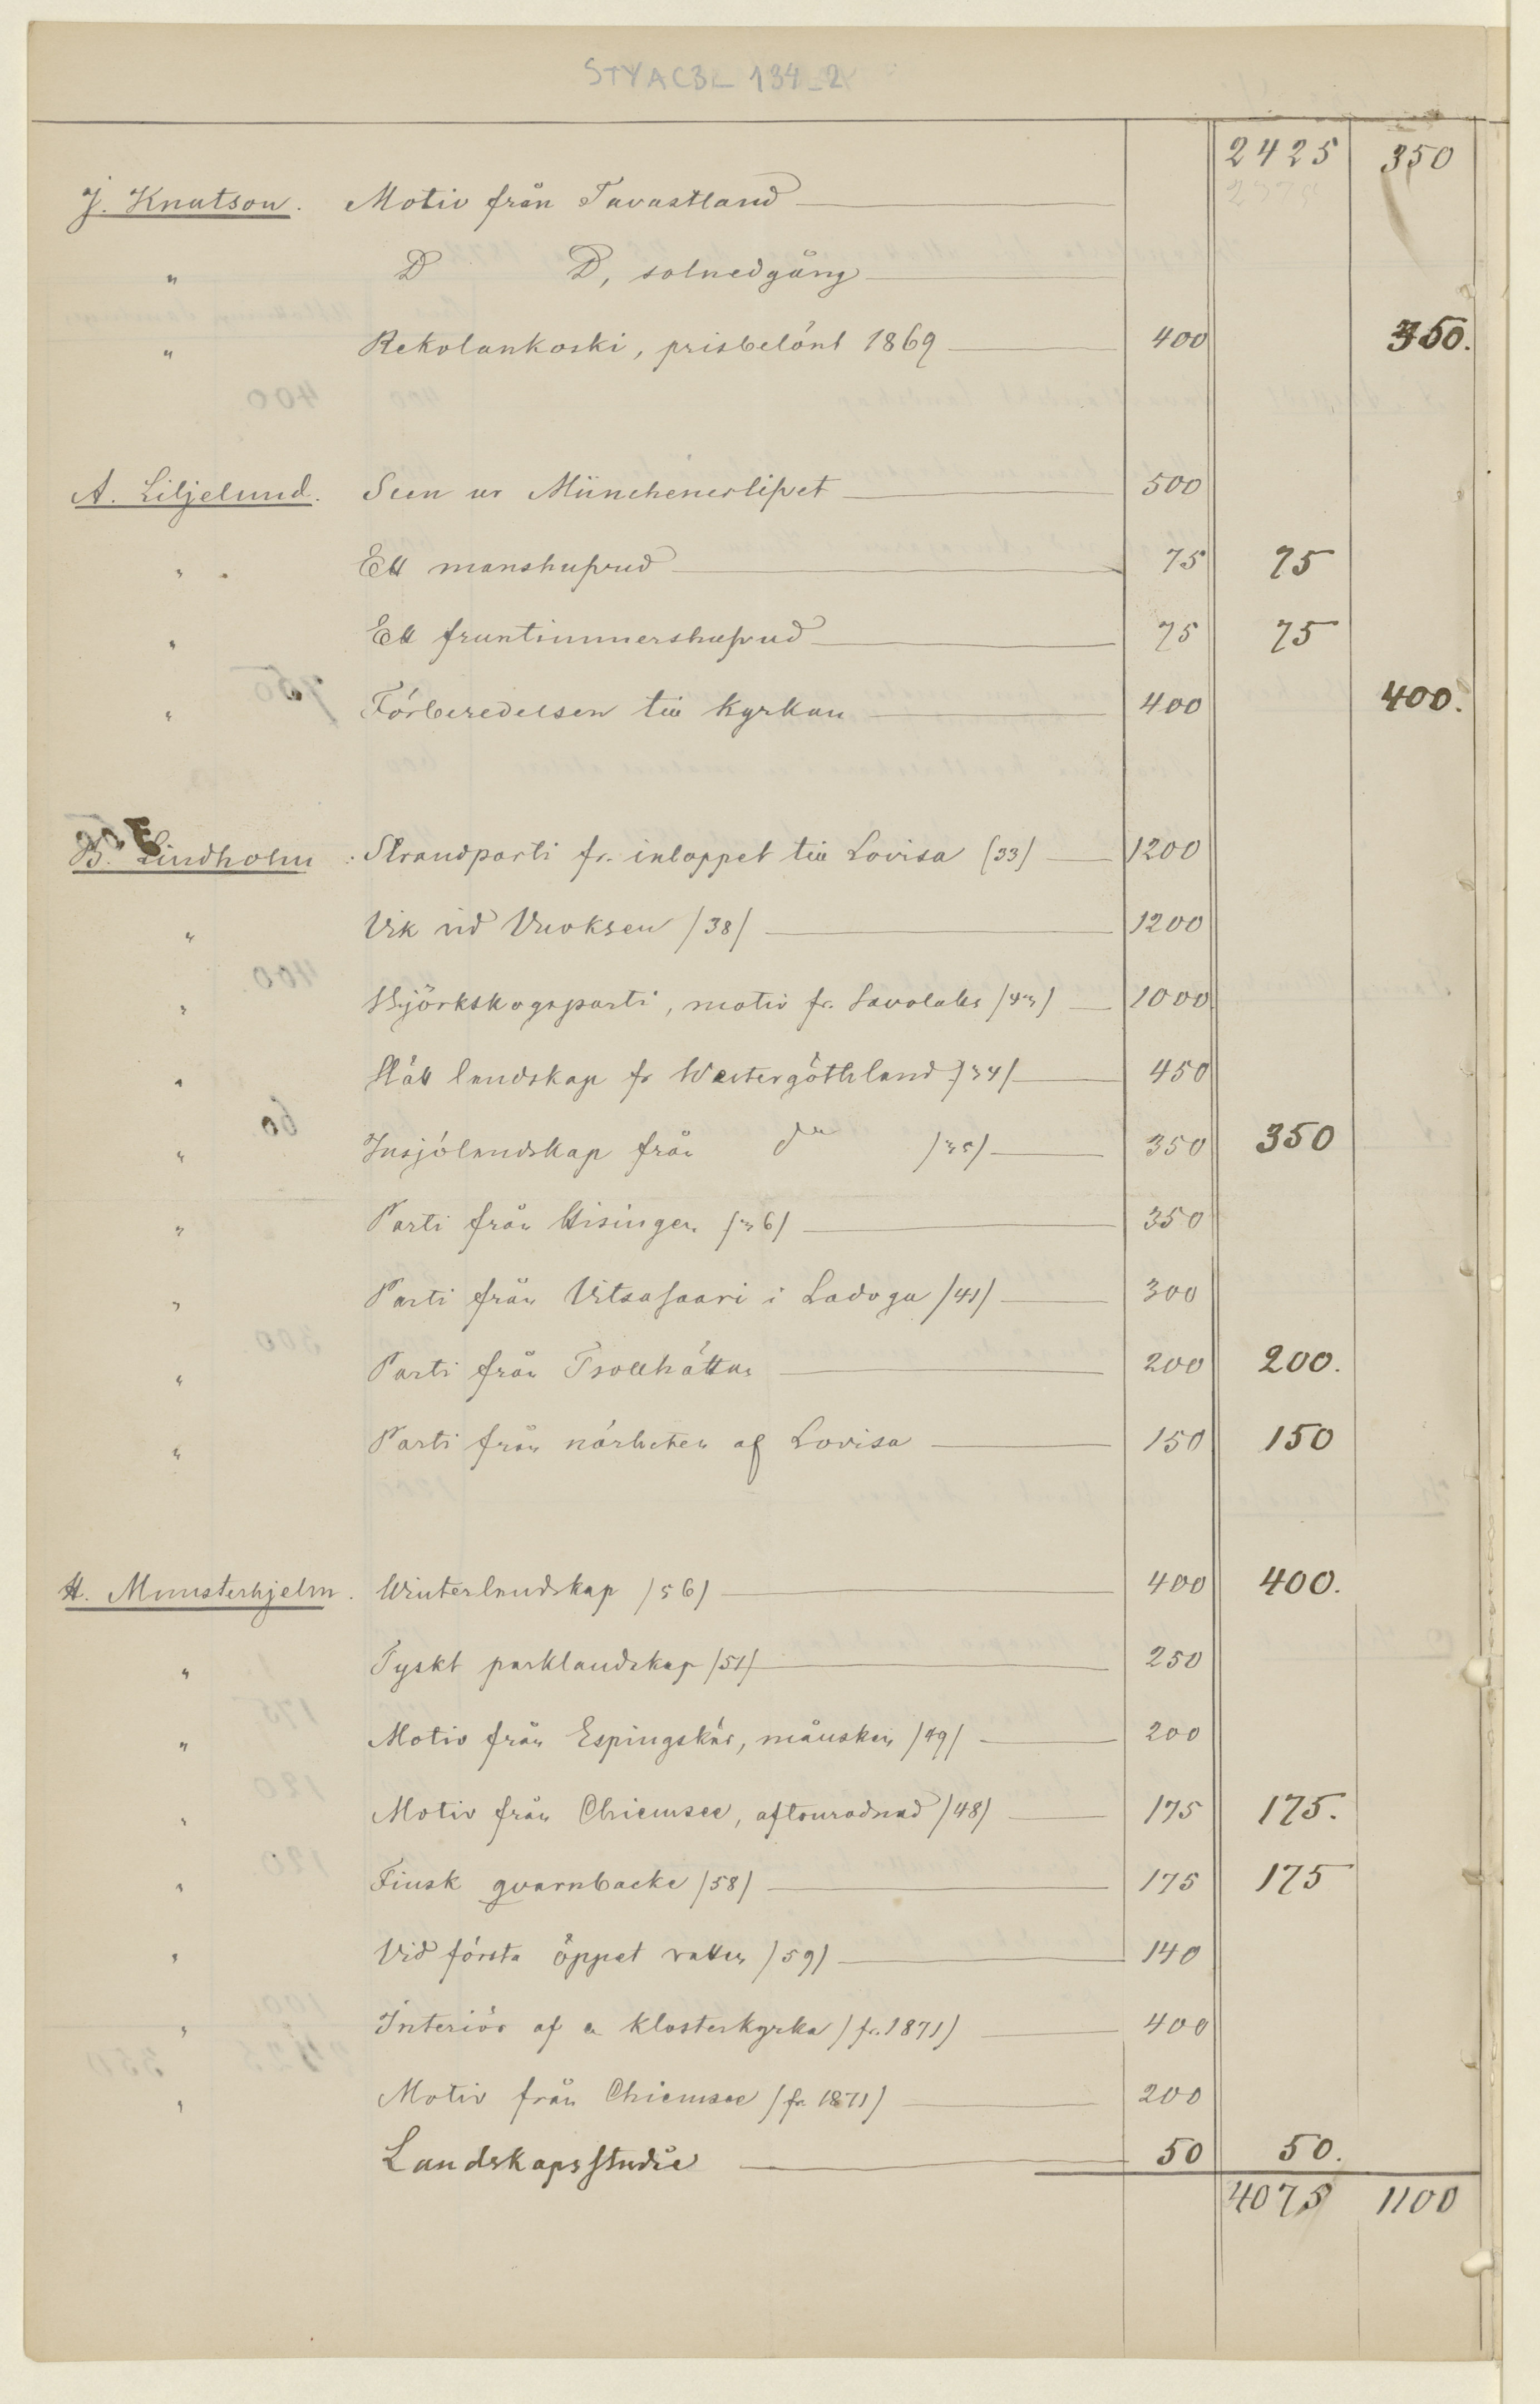 STYACBL_134_2
2425 350
J. Knutson. Motiv från Tavastland
" D D, solnedgång
" Rekolankoski, prisbelönt 1869 400 350.
A. Liljelund. Scen ur Münchenerlifvet 500
" " Ett manshufvud 75 75
" Ett fruntimmershufvud 75 75
" Förberedelsen till kyrkan 400 400.
B. Lindholm. Strandparti fr. inloppet till Lovisa (33) 1200
" Vik vid Vuoksen /38/ 1200
" Björkskogsparti, motiv fr. Savolaks /43/ 1000
" Slätt landskap fr Westergöthland /34/ 450
" Insjölandskap från do /35/ 350 350
" Parti från Hisingen /36/ 350
" Parti från Vitsasaari i Ladoga /41/ 300
" Parti från Trollhättan 200 200.
" Parti från närheten af Lovisa 150 150
H. Munsterhjelm. Winterlandskap /56/ 400 400.
" Tyskt parklandskap /51/ 250
" Motiv från Espingskär, månsken /49/ 200
" Motiv från Chiemsee, aftonrodnad /48/ 175 175.
" Finsk qvarnbacke /58/ 175 175
" Vid första öppet vatten /59/ 140
" Interiör af en klosterkyrka /fr. 1871/ 400
" Motiv från Chiemsee /fr 1871/ 200
Landskapsstudie 50 50.
4075 1100